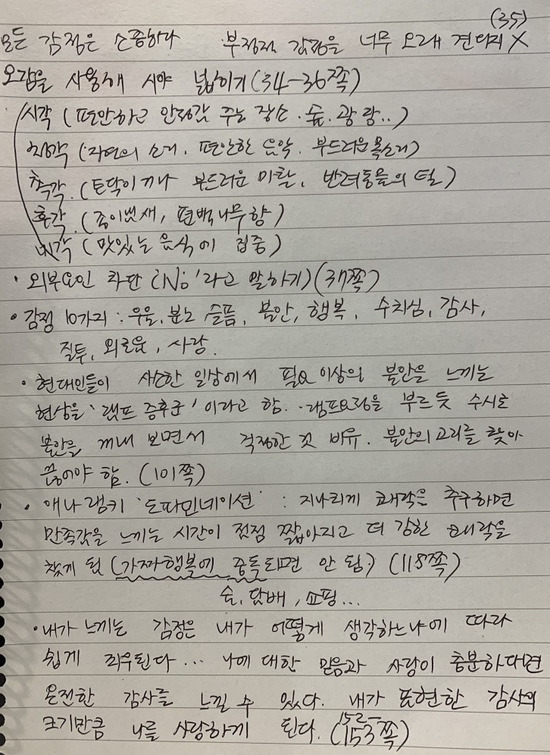 (35)
모든 감정은 소중하다 부정적 감정을 너무 오래 견디지 X
오감을 사용해 시야 넓히기 (34-36쪽)
시각 (편안하고 안정감 주는 장소. 숲, 광활..)
청각 (자연의 소리, 편안한 음악. 부드러운 목소리)
촉각. (토닥이거나 부드러운 마찰, 반려동물의 털)
후각. (종이냄새, 편백나무향)
미각 (맛있는 음식에 집중)
· 외부요인 차단 ('No'라고 말하기) (37쪽)
· 감정 10가지 : 우울, 분노, 슬픔, 불안, 행복, 수치심, 감사,
질투, 외로움, 사랑.
· 현대인들이 사소한 일상에서 필요 이상의 불안을 느끼는
현상을 '램프 증후군' 이라고 함. 램프요정을 부르듯 수시로
불안을 꺼내 보면서 걱정한 것 비유. 불안의 고리를 찾아
끊어야 함. (101쪽)
· 애나 램키 '도파민네이션' : 지나치게 쾌락을 추구하면
만족감을 느끼는 시간이 점점 짧아지고 더 강한 쾌락을
찾게 됨 (가짜행복에 중독되면 안 됨.) (115쪽)
술, 담배, 쇼핑...
· 내가 느끼는 감정은 내가 어떻게 생각하느냐에 따라
쉽게 좌우된다... 나에 대한 믿음과 사랑이 충분하다면
온전한 감사를 느낄 수 있다. 내가 표현한 감사의
크기만큼 나를 사랑하게 된다. (152-153쪽)